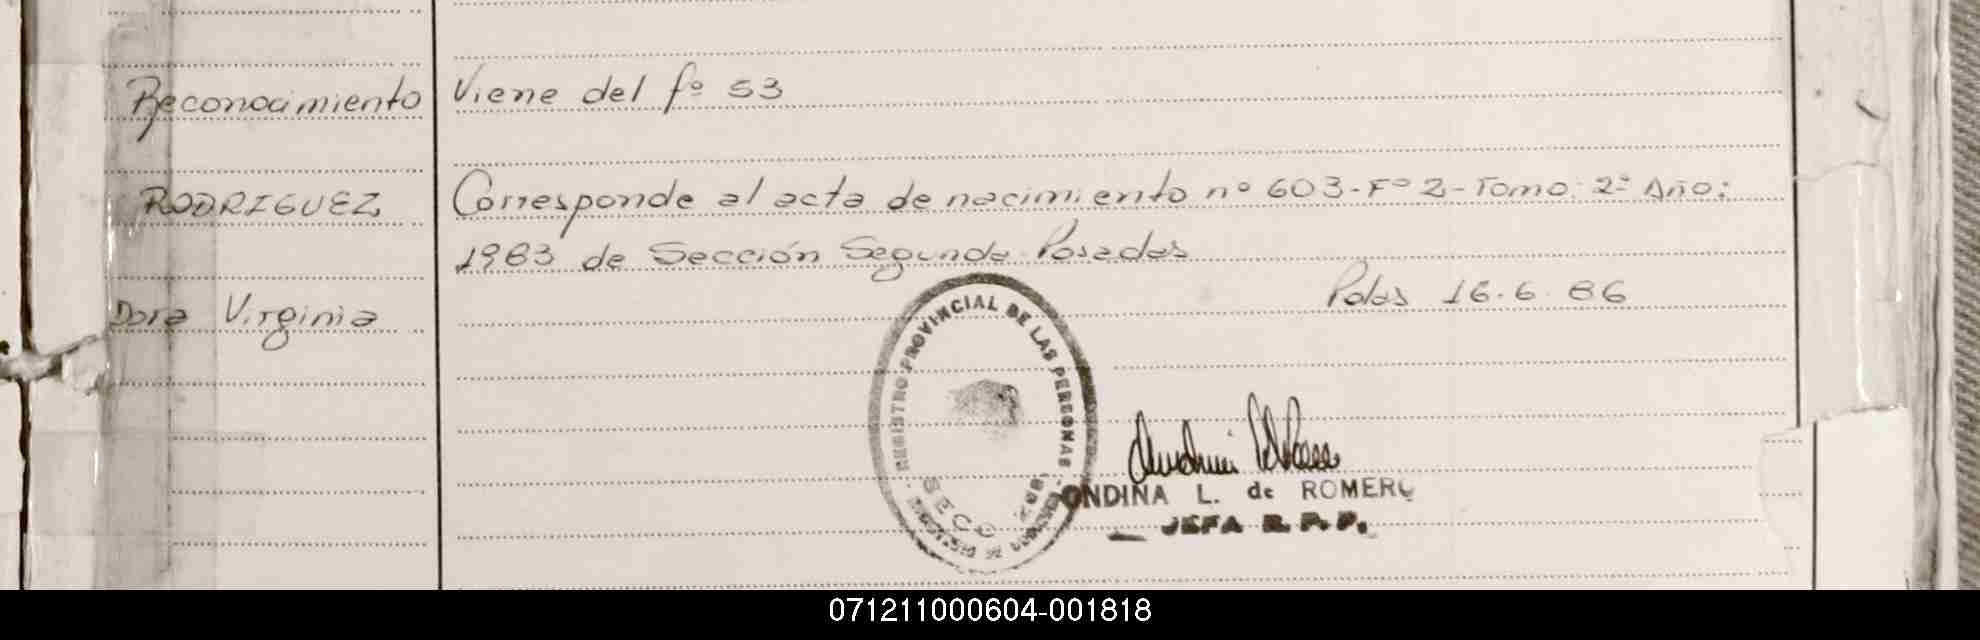 Reconocimiento
RODRIGUEZ,
Dora Virginia
Viene del fº 53
Corresponde al acta de nacimiento nº 603-Fº 2-Tomo: 2º Año:
1983 de Sección Segunda Posadas
Pdas 16.6.86
REGISTRO PROVINCIAL DE LAS PERSONAS
SECC
ONDINA L. de ROMERO
JEFA R.P.P.
071211000604-001818